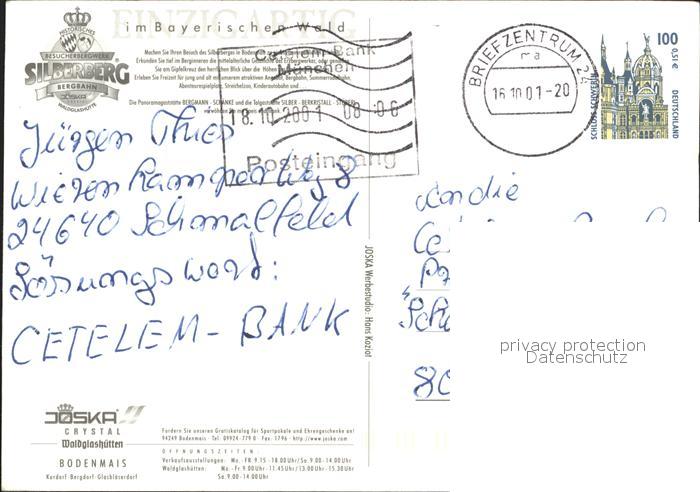 EINZIGARTIG
im Bayerischen Wald
HISTORISCHES
BESUCHERBERGWERK
SILBERBERG
BERGBAHN
JOSKA
WALDGLASHÜTTE
Machen Sie Ihren Besuch des Silberberges in Bodenmais
Erkunden Sie tief im Berginneren die mittelalterliche
am Gipfelkreuz den herrlichen Blick über die Höhen
Erleben Sie Freizeit für jung und alt mit unserem attraktiven Bergbahn, Sommerrodelbahn,
Abenteuerspielplatz, Streichelzoo, Kinderautobahn
Die Panoramagaststätte BERGMANN - SCHÄNKE und die Talgaststätte SILBER - BERKRISTALL - STUBEN
verwöhnen Sie
Cetelem Bank
München
18.10.2001 08:06
Posteingang
BRIEFZENTRUM 24
ma
16.10.01-20
100
0,51 €
SCHLOSS
DEUTSCHLAND
Jürgen Thies
Wierenkamper Weg 8
24640 Schmalfeld
Lösungswort:
CETELEM-BANK
an die
Ce
Po
Sch
80
JOSKA Werbestudio: Hans Koziot
privacy protection
Datenschutz
JOSKA
CRYSTAL
Waldglashütten
BODENMAIS
Kurdorf·Bergdorf·Glasbläserdorf
Fordern Sie unseren Gratiskatalog für Sportpokale und Ehrengeschenke an!
94249 Bodenmais · Tel: 09924-779 0 · Fax -1796 · http://www.joska.com
ÖFFNUNGSZEITEN:
Verkaufsausstellungen: Mo.-FR.9.15-18.00Uhr/Sa.9.00-14.00Uhr
Waldglashütten: Mo.-Fr.9.00Uhr-11.45Uhr/13.00Uhr-15.30Uhr
Sa.9.00-14.00Uhr